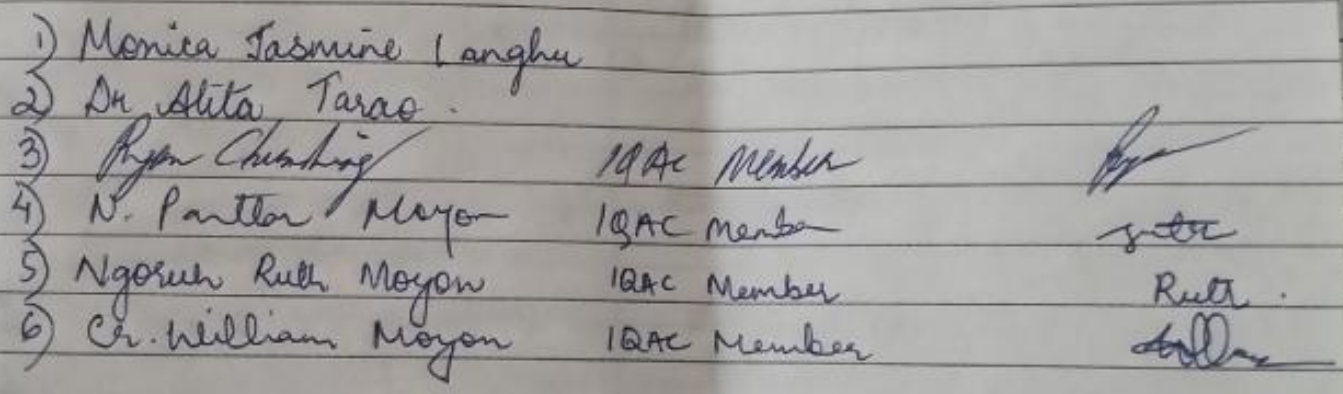 1) Monica Jasmine Langhu
2) Dr Alita Tarao .
3) Ryan Chumthing IQAC Member
4) N. Panttor Moyon IQAC Member
5) Ngoruh Ruth Moyon IQAC Member Ruth .
6) Ch. William Moyon IQAC Member